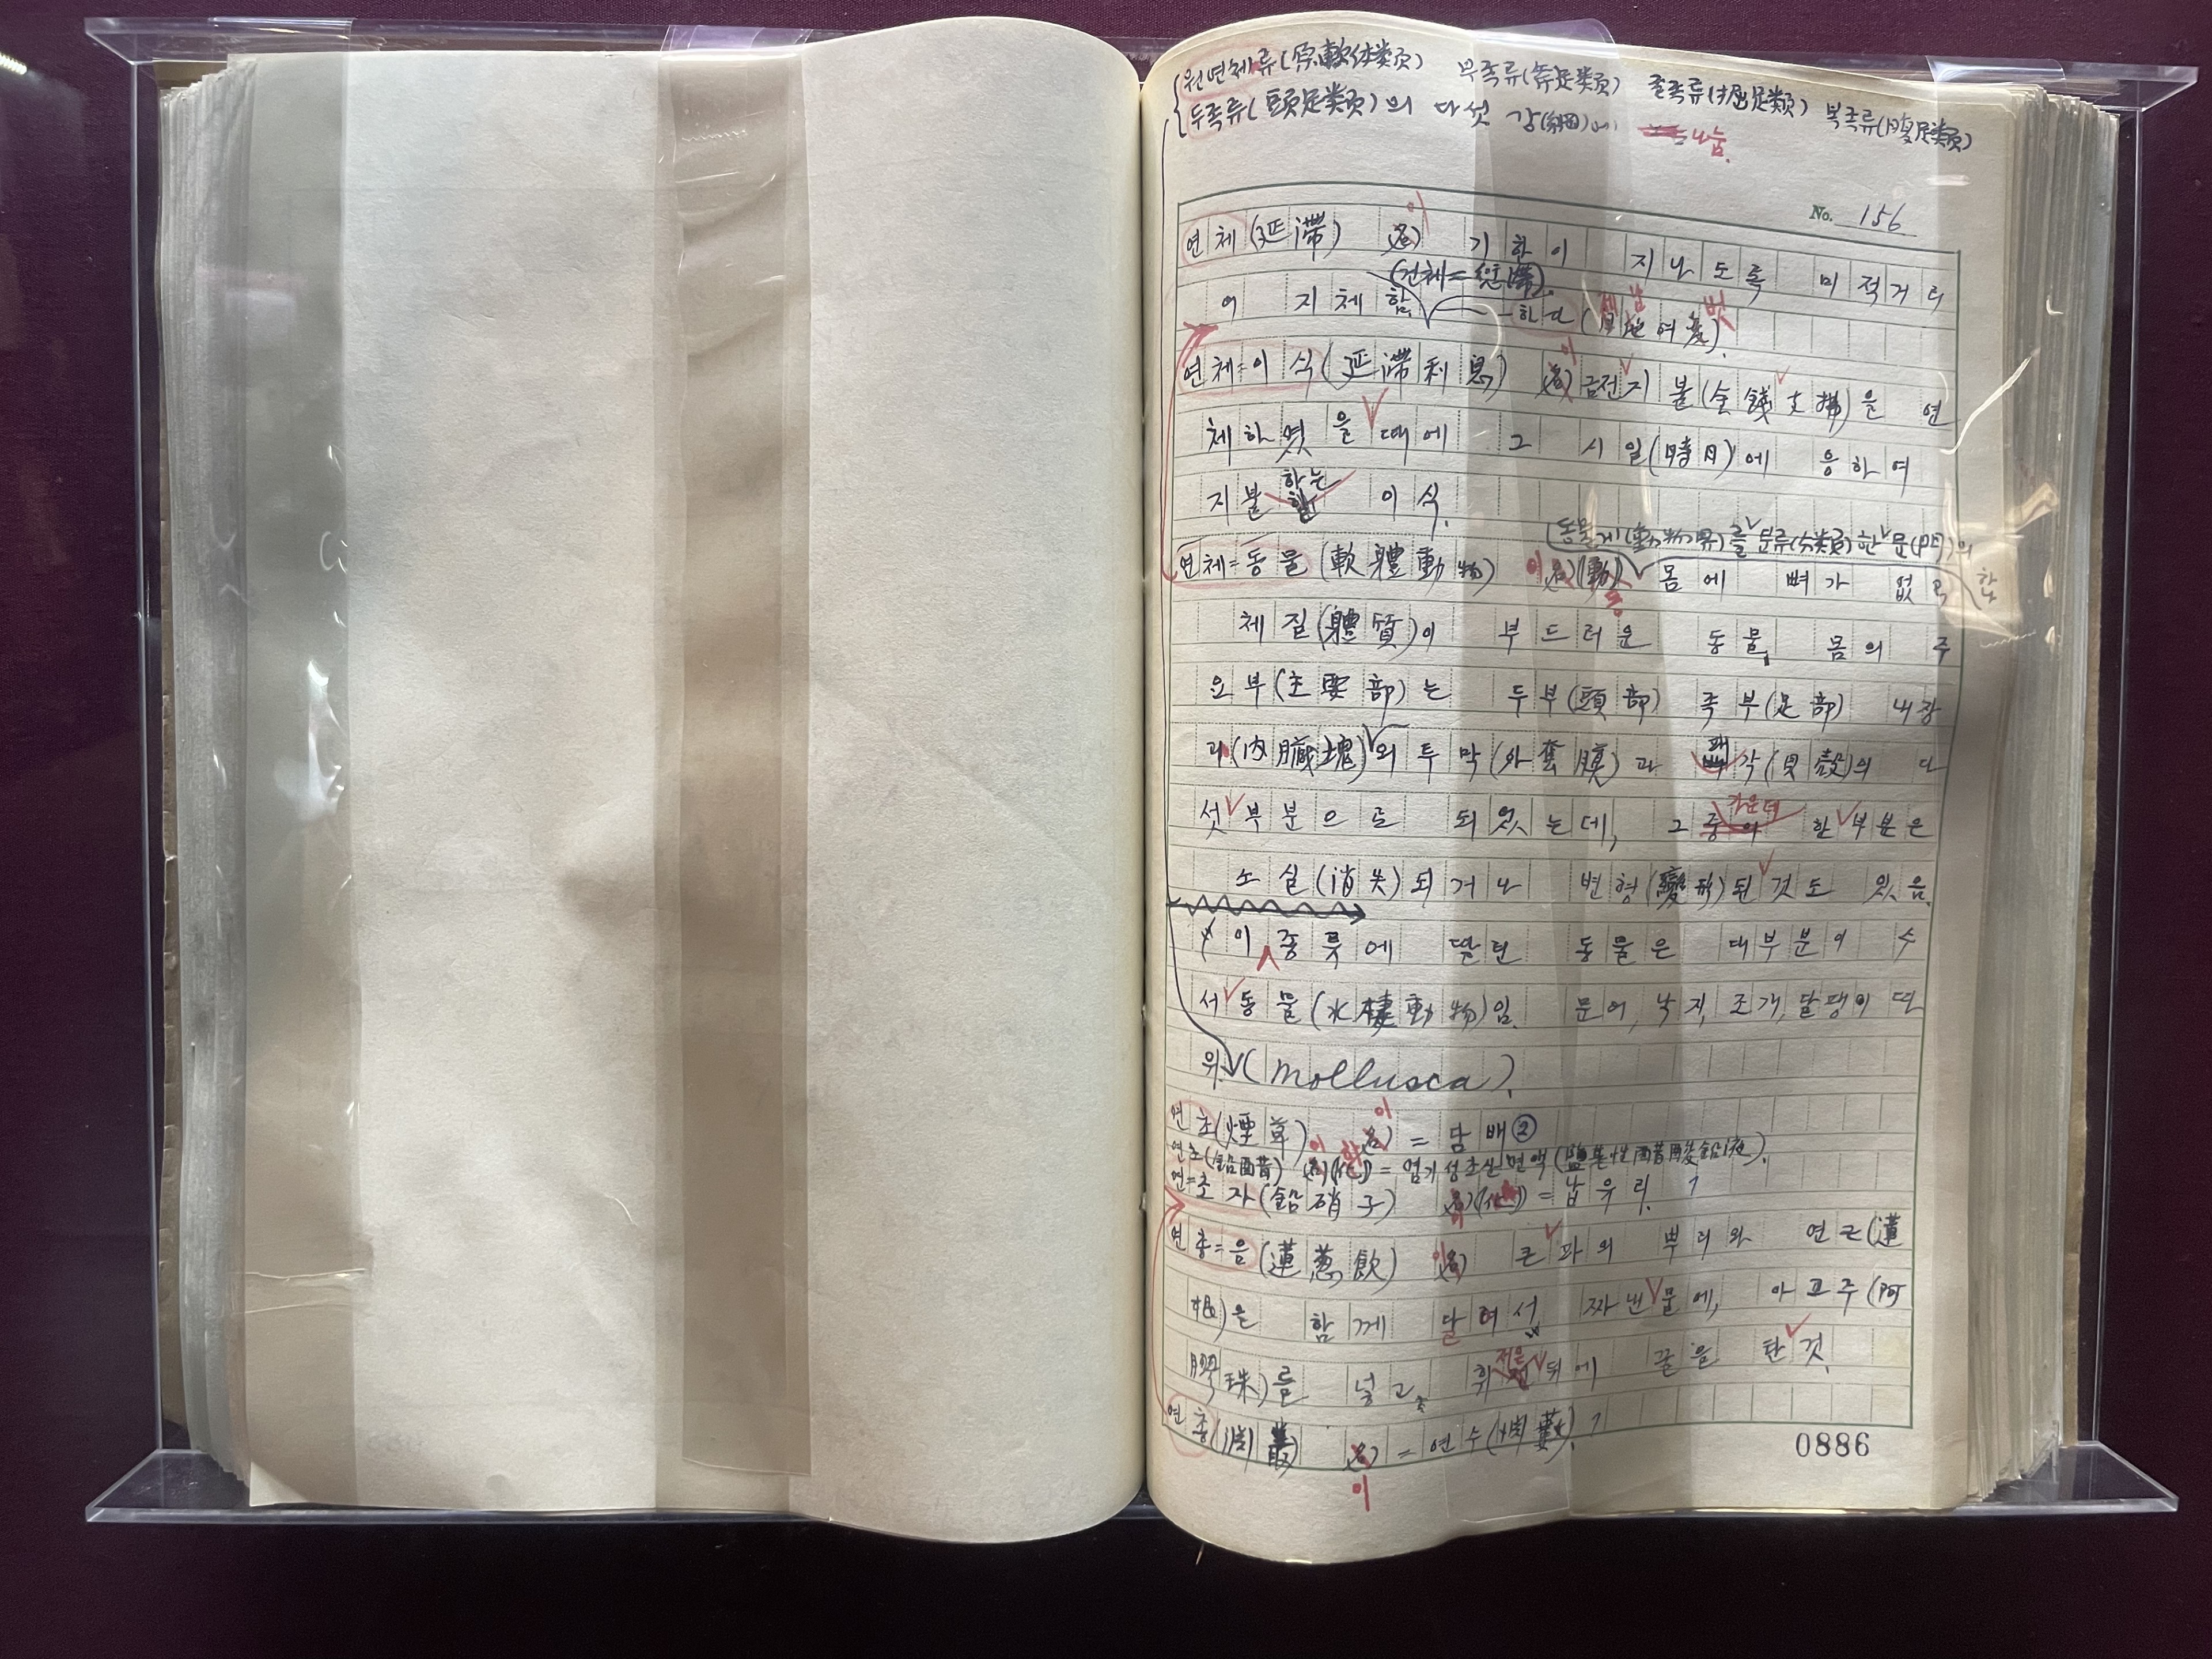 원연체류(原軟体类頁) 부족류(斧足类頁) 굴족류(掘足類) 복족류(腹足類)
두족류(頭足类頁)의 다섯 강(綱)에 나눔.
No. 156
연체(延滯) 名) 이 기한이 지나도록 미적거리
(건체=愆滯).
어 지체함 하다(여 벗).
연체=이식(延滯利息) 名) 이 금전지불(金錢支拂)을 연
체하였을 때에 그 시일(時日)에 응하여
지불하는 이식.
동물계(動物界)를 분류(分类頁)한 문(門)의
연체=동물(軟體動物) 이 名)(動) 동 몸에 뼈가 없고, 한
체질(體質)이 부드러운 동물, 몸의 주
요부(主要部)는 두부(頭部) 족부(足部) 내장
괴(內臟塊) 외투막(外套膜)과 패각(貝殼)의 다
섯 부분으로 되었는데, 그 중의 가운데 한 부분은
소실(消失)되거나 변형(變形)된 것도 있음.
이 종릇에 딸린 동물은 대부분이 수
서 동물(水棲動物)임. 문어, 낙지, 조개, 달팽이 따
위 (mollusca).
연초(煙草) 名) 이 = 담배②
연초(鉛醋) 名)(化) 이 화 = 염기성초산연액(鹽基性醋酸鉛液).
연=초자(鉛硝子) 名)(化) 이 = 납유리.
연총=음(蓮葱飮) 名) 이 큰 파의 뿌리와 연근(蓮
根)을 함께 달여서 짜낸 물에, 아교주(阿
膠珠)를 넣고, 휘저은 뒤에 꿀을 탄 것.
연총(淵叢) 名) 이 = 연수(淵藪).
0886